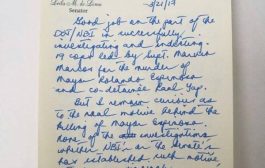 Leila M. de Lima
Senator
3/21/17
Good job on the part of the
DOJ/NBI in successfully
investigating and indicting
19 cops led by Supt. Marvin
Marcos for the murder of
Mayor Rolando Espinosa
and co-detainee Raul Yap.
But I remain curious as
to the real motive behind the
killing of Mayor Espinosa.
None of the investigations
whether NBI's or the Senate's
has established such motive,